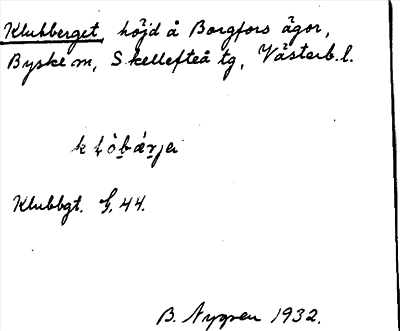 Klubberget, höjd å Borgfors ägor,
Byske m, Skellefteå tg, Västerb. l.
Klubbgt. G. 44.
B. Nygren 1932.